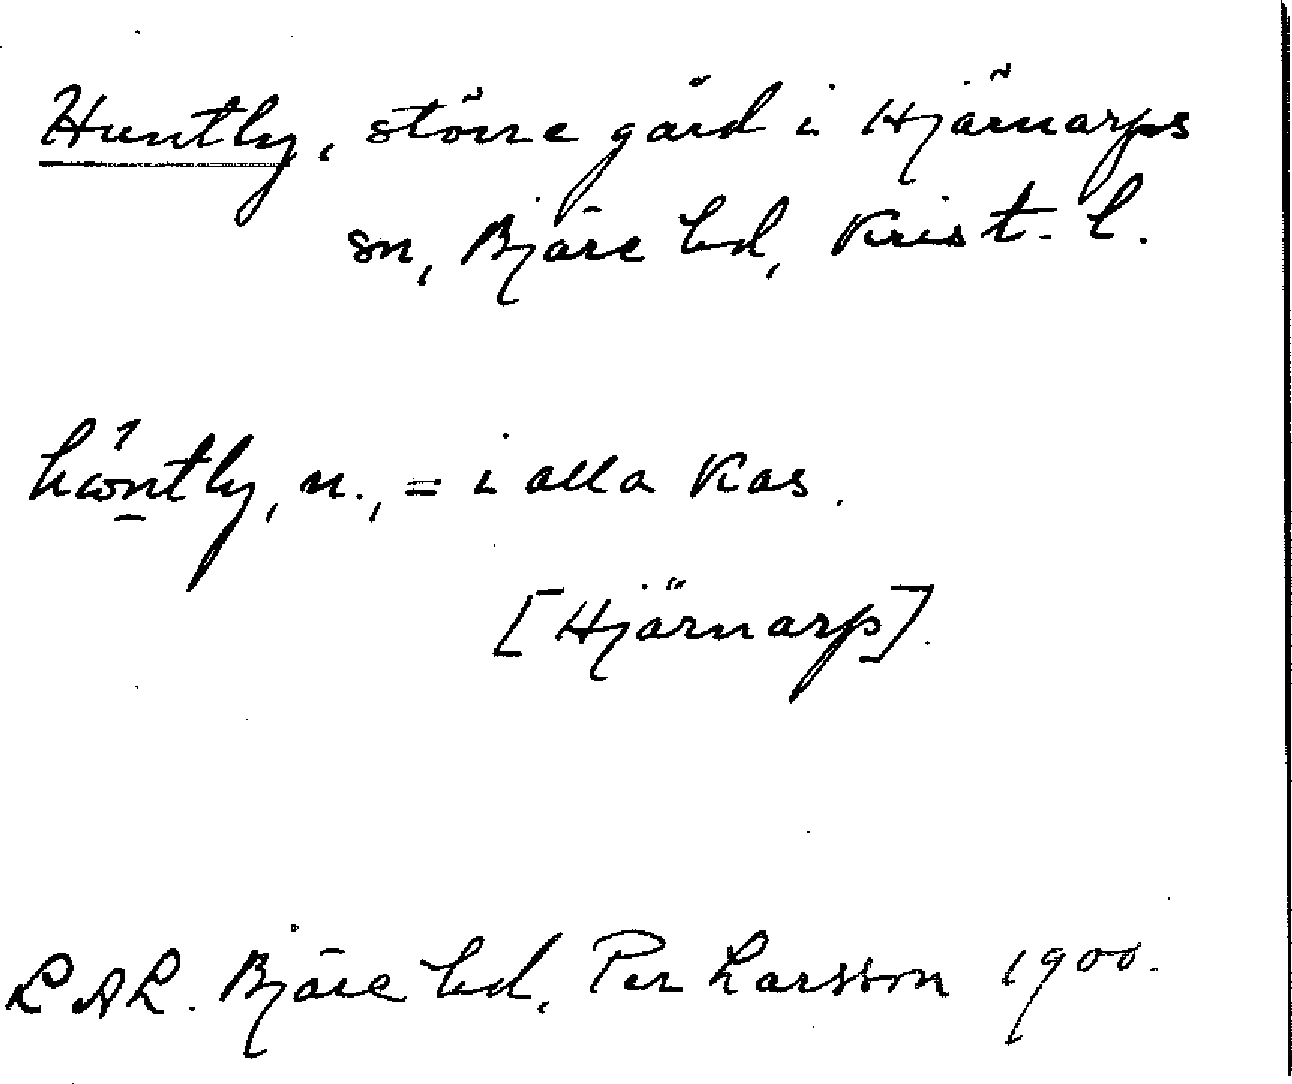 Huntly, större gård i Hjärnarps
sn, Bjäre hd, Krist. l.
n., = i alla kas.
[Hjärnarp].
LAL. Bjäre hd, Per Larsson 1900.